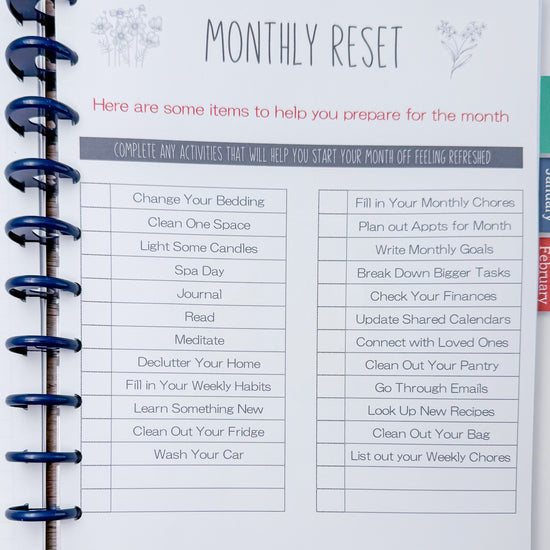 MONTHLY RESET
Here are some items to help you prepare for the month
COMPLETE ANY ACTIVITIES THAT WILL HELP YOU START YOUR MONTH OFF FEELING REFRESHED
Change Your Bedding
Clean One Space
Light Some Candles
Spa Day
Journal
Read
Meditate
Declutter Your Home
Fill in Your Weekly Habits
Learn Something New
Clean Out Your Fridge
Wash Your Car
Fill in Your Monthly Chores
Plan out Appts for Month
Write Monthly Goals
Break Down Bigger Tasks
Check Your Finances
Update Shared Calendars
Connect with Loved Ones
Clean Out Your Pantry
Go Through Emails
Look Up New Recipes
Clean Out Your Bag
List out your Weekly Chores
January
February